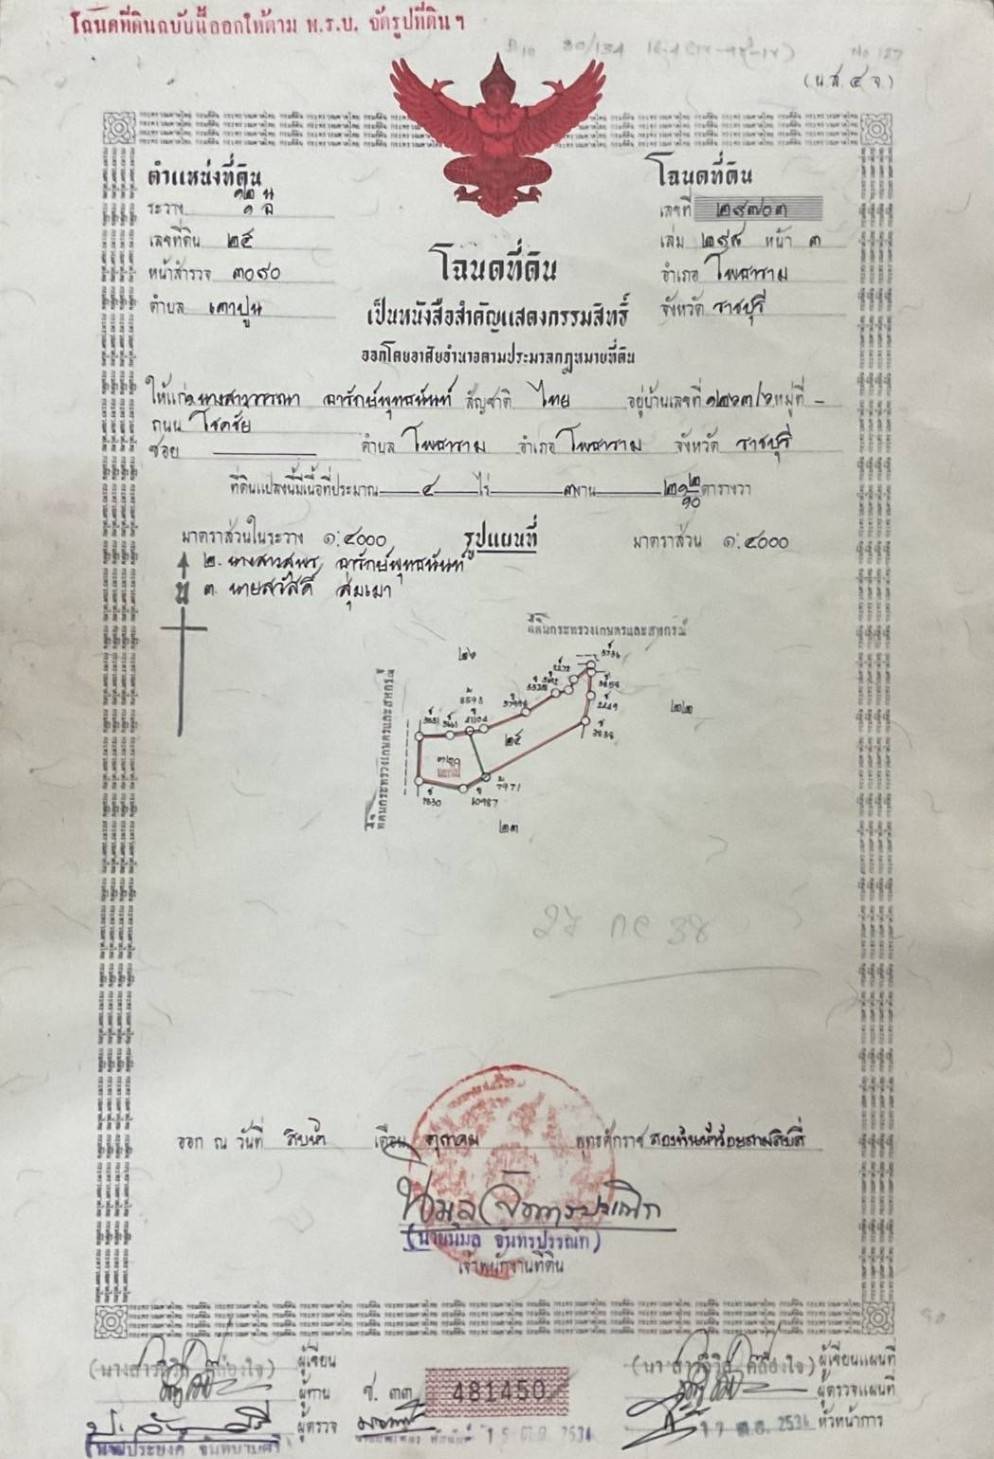 โฉนดที่ดินฉบับนี้ออกให้ตาม พ.ร.บ. จัดรูปที่ดินฯ
(น.ส. ๔ จ.)
ตำแหน่งที่ดิน
ระวาง
เลขที่ดิน ๒๕
หน้าสำรวจ ๓๐๙๐
ตำบล เตาปูน
โฉนดที่ดิน
เลขที่ ๒๙๗๐๓
เล่ม ๒๙๘ หน้า ๓
อำเภอ โพธาราม
จังหวัด ราชบุรี
โฉนดที่ดิน
เป็นหนังสือสำคัญแสดงกรรมสิทธิ์
ออกโดยอาศัยอำนาจตามประมวลกฎหมายที่ดิน
ให้แก่ ๑.นางสาววรรณา อารักษ์พุทธนันท์ สัญชาติ ไทย อยู่บ้านเลขที่ หมู่ที่ -
ถนน โชคชัย
ซอย ตำบล โพธาราม อำเภอ โพธาราม จังหวัด ราชบุรี
ที่ดินแปลงนี้มีเนื้อที่ประมาณ ๔ ไร่ ๓ งาน ตารางวา
มาตราส่วนในระวาง ๑:๔๐๐๐ รูปแผนที่ มาตราส่วน ๑:๔๐๐๐
๒. นางสาวสุพร อารักษ์พุทธนันท์
๓. นายสวัสดิ์ สุ่มเมา
น
ที่ดินกระทรวงเกษตรและสหกรณ์
๒๖
๒๒
๒๕
ที่ดินกระทรวงเกษตรและสหกรณ์
7971
๒๓
ออก ณ วันที่ สิบห้า เดือน ตุลาคม พุทธศักราช สองพันห้าร้อยสามสิบสี่
(นายนิมูล จันทรปรรณิก)
เจ้าพนักงานที่ดิน
ผู้เขียน
ผู้ทาน
ผู้ตรวจ
ช. ๓๓ 481450
15 ต.ค. 2534
ผู้เขียนแผนที่
ผู้ตรวจแผนที่
หัวหน้าการ
17 ต.ค. 2534